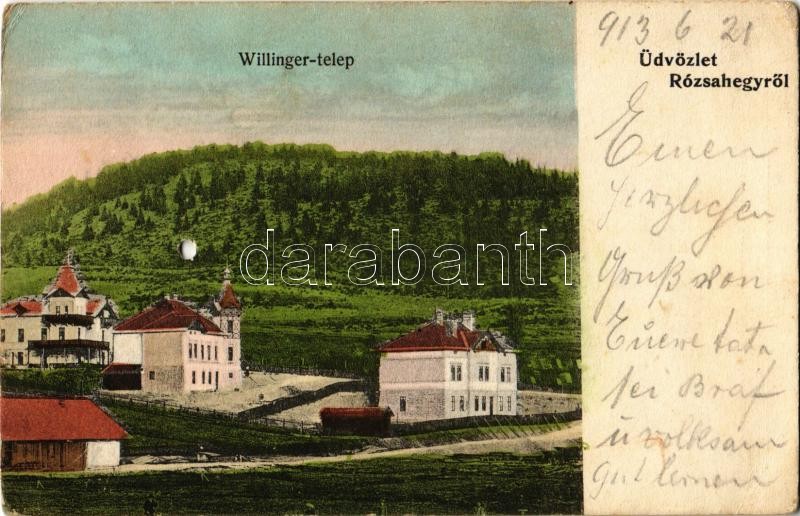 Willinger-telep
913 6 21
Üdvözlet
Rózsahegyről
Einen
herzlichen
Gruß von
Euere tata
sei Braf
u volksam
gut lernen
darabanth